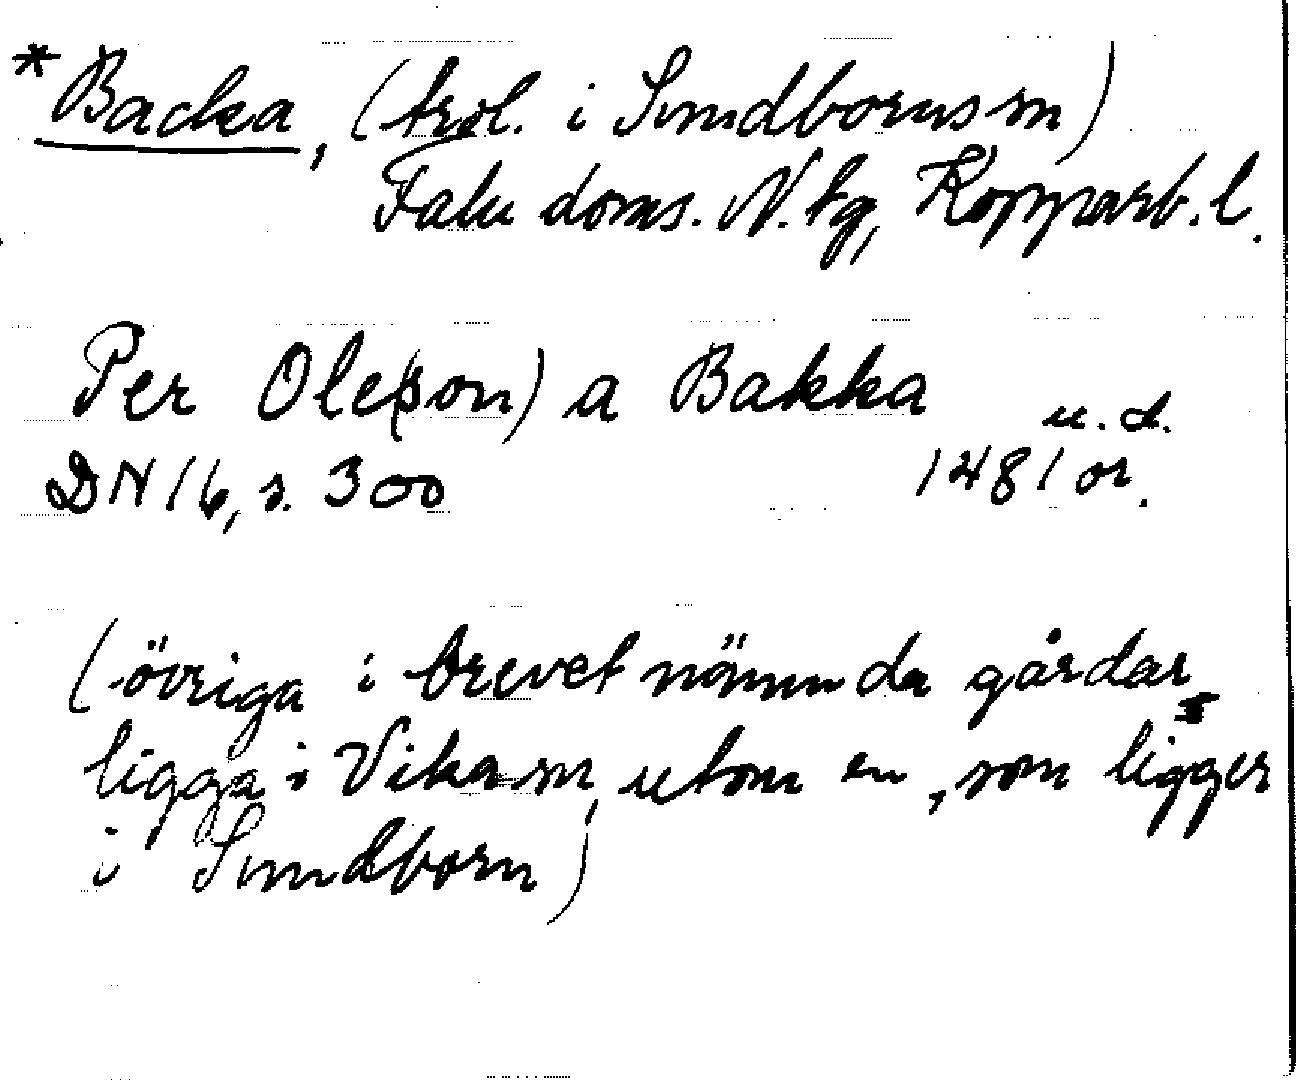 *Backa, (trol. i Sundborns sn)
Falu doms. N. tg, Kopparb. l.
Per Ole(son) a Bakka u. d.
DN 16, s. 300 1481 or.
(övriga i brevet nämnda gårdar
ligga i Vika sn, utom en, som ligger
i Sundborn)